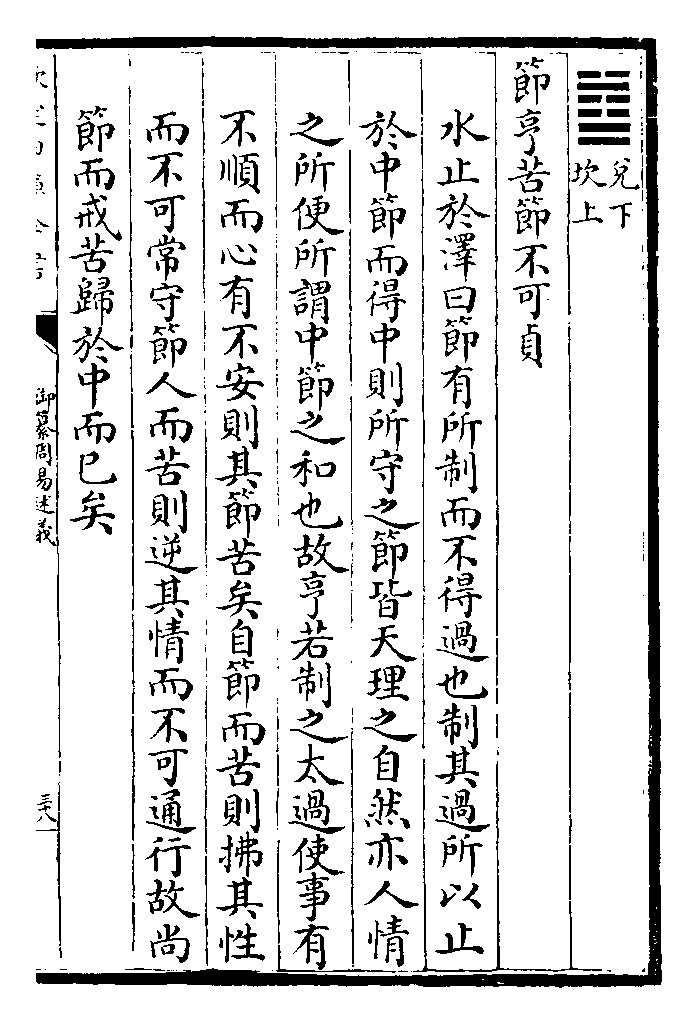 ䷻兌下
坎上
節亨苦節不可貞
水止於澤曰節有所制而不得過也制其過所以止
於中節而得中則所守之節皆天理之自然亦人情
之所便所謂中節之和也故亨若制之太過使事有
不順而心有不安則其節苦矣自節而苦則拂其性
而不可常守節人而苦則逆其情而不可通行故尚
節而戒苦歸於中而已矣
御纂周易述義
三十八